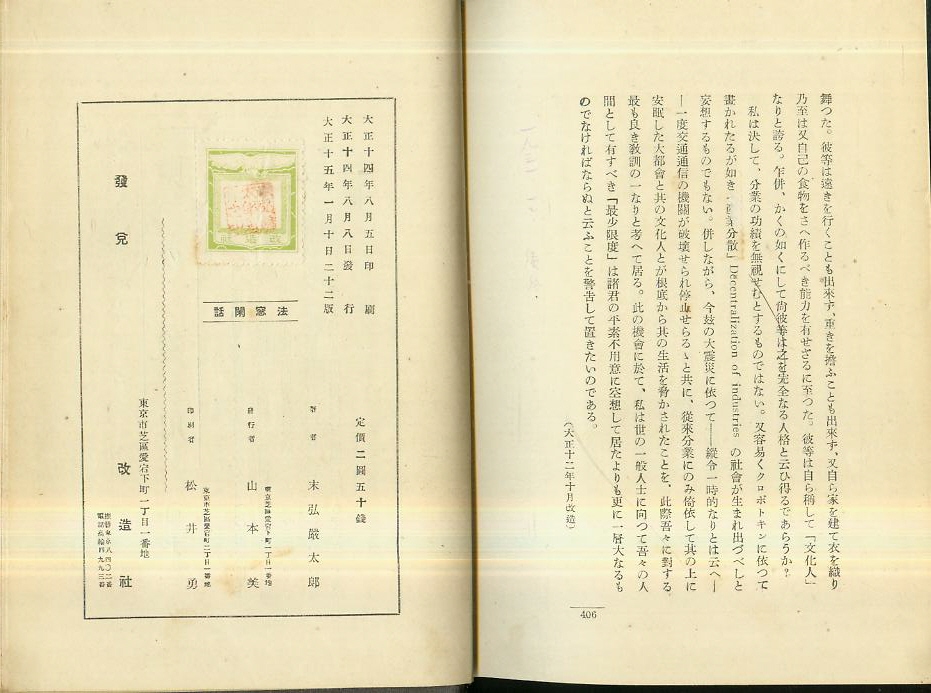 舞つた。彼等は遠きを行くことも出來ず、重きを擔ふことも出來ず、又自ら家を建て衣を織り
乃至は又自己の食物をさへ作るべき能力を有せざるに至つた。彼等は自ら稱して「文化人」
なりと誇る。乍併、かくの如くにして尚彼等は之を完全なる人格と云ひ得るであらうか?
私は決して、分業の功績を無視せむとするものではない。又容易くクロポトキンに依つて
畫かれたるが如き「産業分散」Decentralization of industries の社會が生まれ出づべしと
妄想するものでもない。併しながら、今玆の大震災に依つて――縱令一時的なりとは云へ―
―一度交通通信の機關が破壞せられ停止せらるゝと共に、從來分業にのみ倚依して其の上に
安眠した大都會と其の文化人とが根底から其の生活を脅かされたことを、此際吾々に對する
最も良き敎訓の一なりと考へて居る。此の機會に於て、私は世の一般人士に向つて吾々の人
間として有すべき「最少限度」は諸君の平素不用意に空想して居たよりも更に一層大なるも
のでなければならぬと云ふことを警告して置きたいのである。
(大正十二年十月改造)
406
大正十四年八月五日印刷
大正十四年八月八日發行
大正十五年一月十日二十二版
法窓閑話
定價二圓五十錢
著者 末弘嚴太郎
東京芝區愛宕下町一丁目一番地
發行者 山本美
東京市芝區愛宕町二丁目一番地
印刷者 松井勇
東京市芝區愛宕下町一丁目一番地
發兌 改造社
振替東京八四〇二番
電話高輪四九九三番